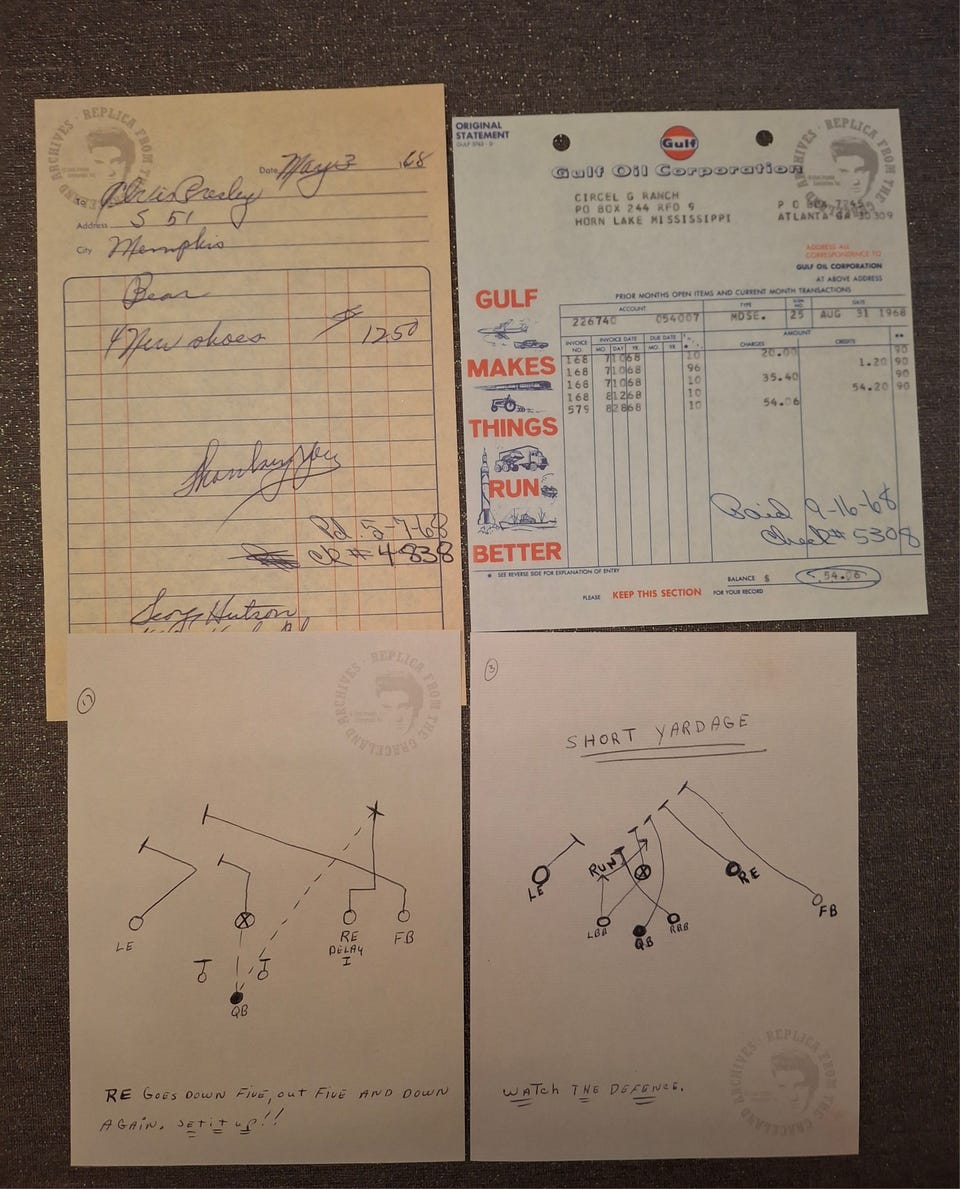 REPLICA FROM THE GRACELAND ARCHIVES
Date May 3 , 68
To Elvis Presley
Address S 51
City Memphis
Bear
4 New shoes $ 12 50
Thank you
Pd. 5-7-68
CK # 4838
Hutson
ORIGINAL
STATEMENT
Gulf
Gulf Oil Corporation
REPLICA FROM THE GRACELAND ARCHIVES
CIRCEL G RANCH
PO BOX 244 RFD 9
HORN LAKE MISSISSIPPI
P O BOX 7245
ATLANTA GA 30309
ADDRESS ALL
CORRESPONDENCE TO
GULF OIL CORPORATION
AT ABOVE ADDRESS
PRIOR MONTHS OPEN ITEMS AND CURRENT MONTH TRANSACTIONS
ACCOUNT TYPE DATE
226740 054007 MDSE. 25 AUG 31 1968
INVOICE NO. INVOICE DATE MO. DAY YR. DUE DATE MO. YR. AMOUNT CHARGES CREDITS **
168 71068 10 20.00 90
168 71068 96 1.20 90
168 71068 10 35.40 90
168 81268 10 54.20 90
579 82868 10 54.06
GULF
MAKES
THINGS
RUN
BETTER
Paid 9-16-68
Check # 5308
* SEE REVERSE SIDE FOR EXPLANATION OF ENTRY
BALANCE $ 54.06
PLEASE KEEP THIS SECTION FOR YOUR RECORD
REPLICA FROM THE GRACELAND ARCHIVES
LE
RE
DELAY
I
FB
QB
RE GOES DOWN FIVE, OUT FIVE AND DOWN
AGAIN. SET IT UP!!
3
SHORT YARDAGE
LE
RUN
RE
FB
LBB
QB
RBB
WATCH THE DEFENCE.
REPLICA FROM THE GRACELAND ARCHIVES